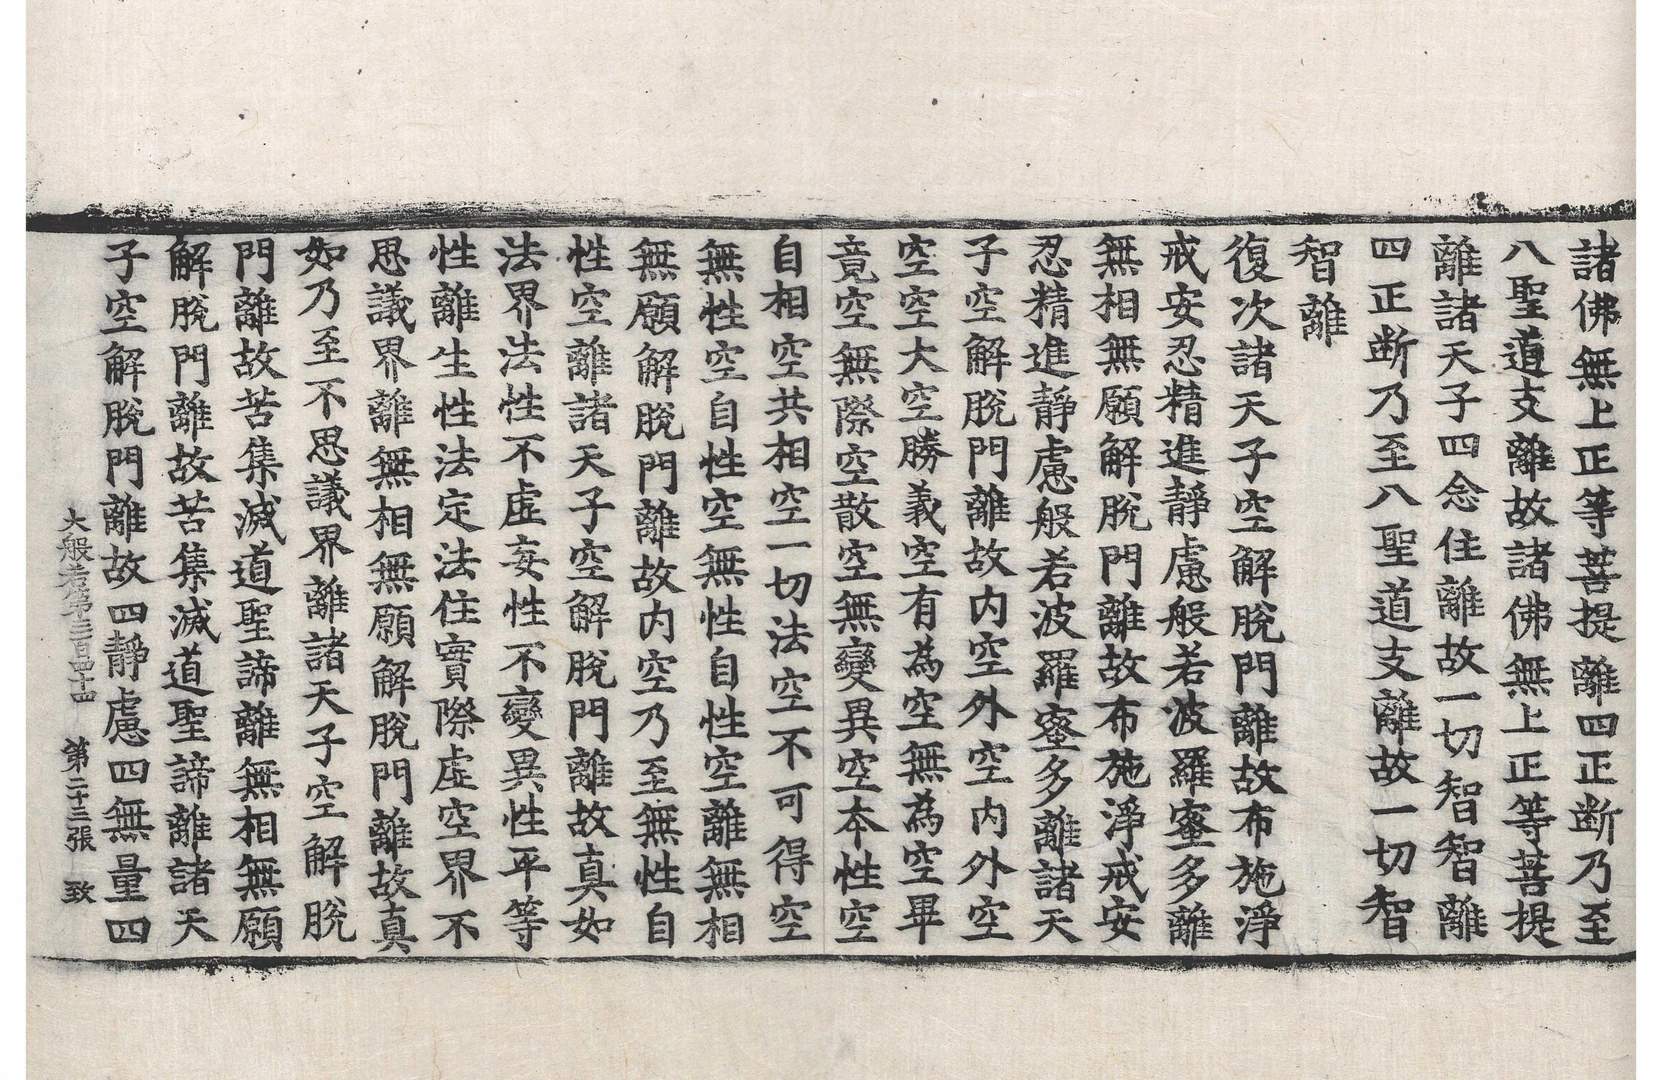 諸佛無上正等菩提離四正断乃至
八聖道支離故諸佛無上正等菩提
離諸天子四念住離故一切智智離
四正断乃至八聖道支離故一切智
智離
復次諸天子空解脫門離故布施淨
戒安忍精進靜慮般若波羅蜜多離
無相無願解脫門離故布施淨戒安
忍精進靜慮般若波羅蜜多離諸天
子空解脫門離故内空外空内外空
空空大空勝義空有為空無為空畢
竟空無際空散空無變異空本性空
自相空共相空一切法空不可得空
無性空自性空無性自性空離無相
無願解脫門離故内空乃至無性自
性空離諸天子空解脫門離故真如
法界法性不虛妄性不變異性平等
性離生性法定法住實際虛空界不
思議界離無相無願解脫門離故真
如乃至不思議界離諸天子空解脫
門離故苦集滅道聖諦離無相無願
解脫門離故苦集滅道聖諦離諸天
子空解脫門離故四靜慮四無量四
大般若第三百四十四 第二十三張 致